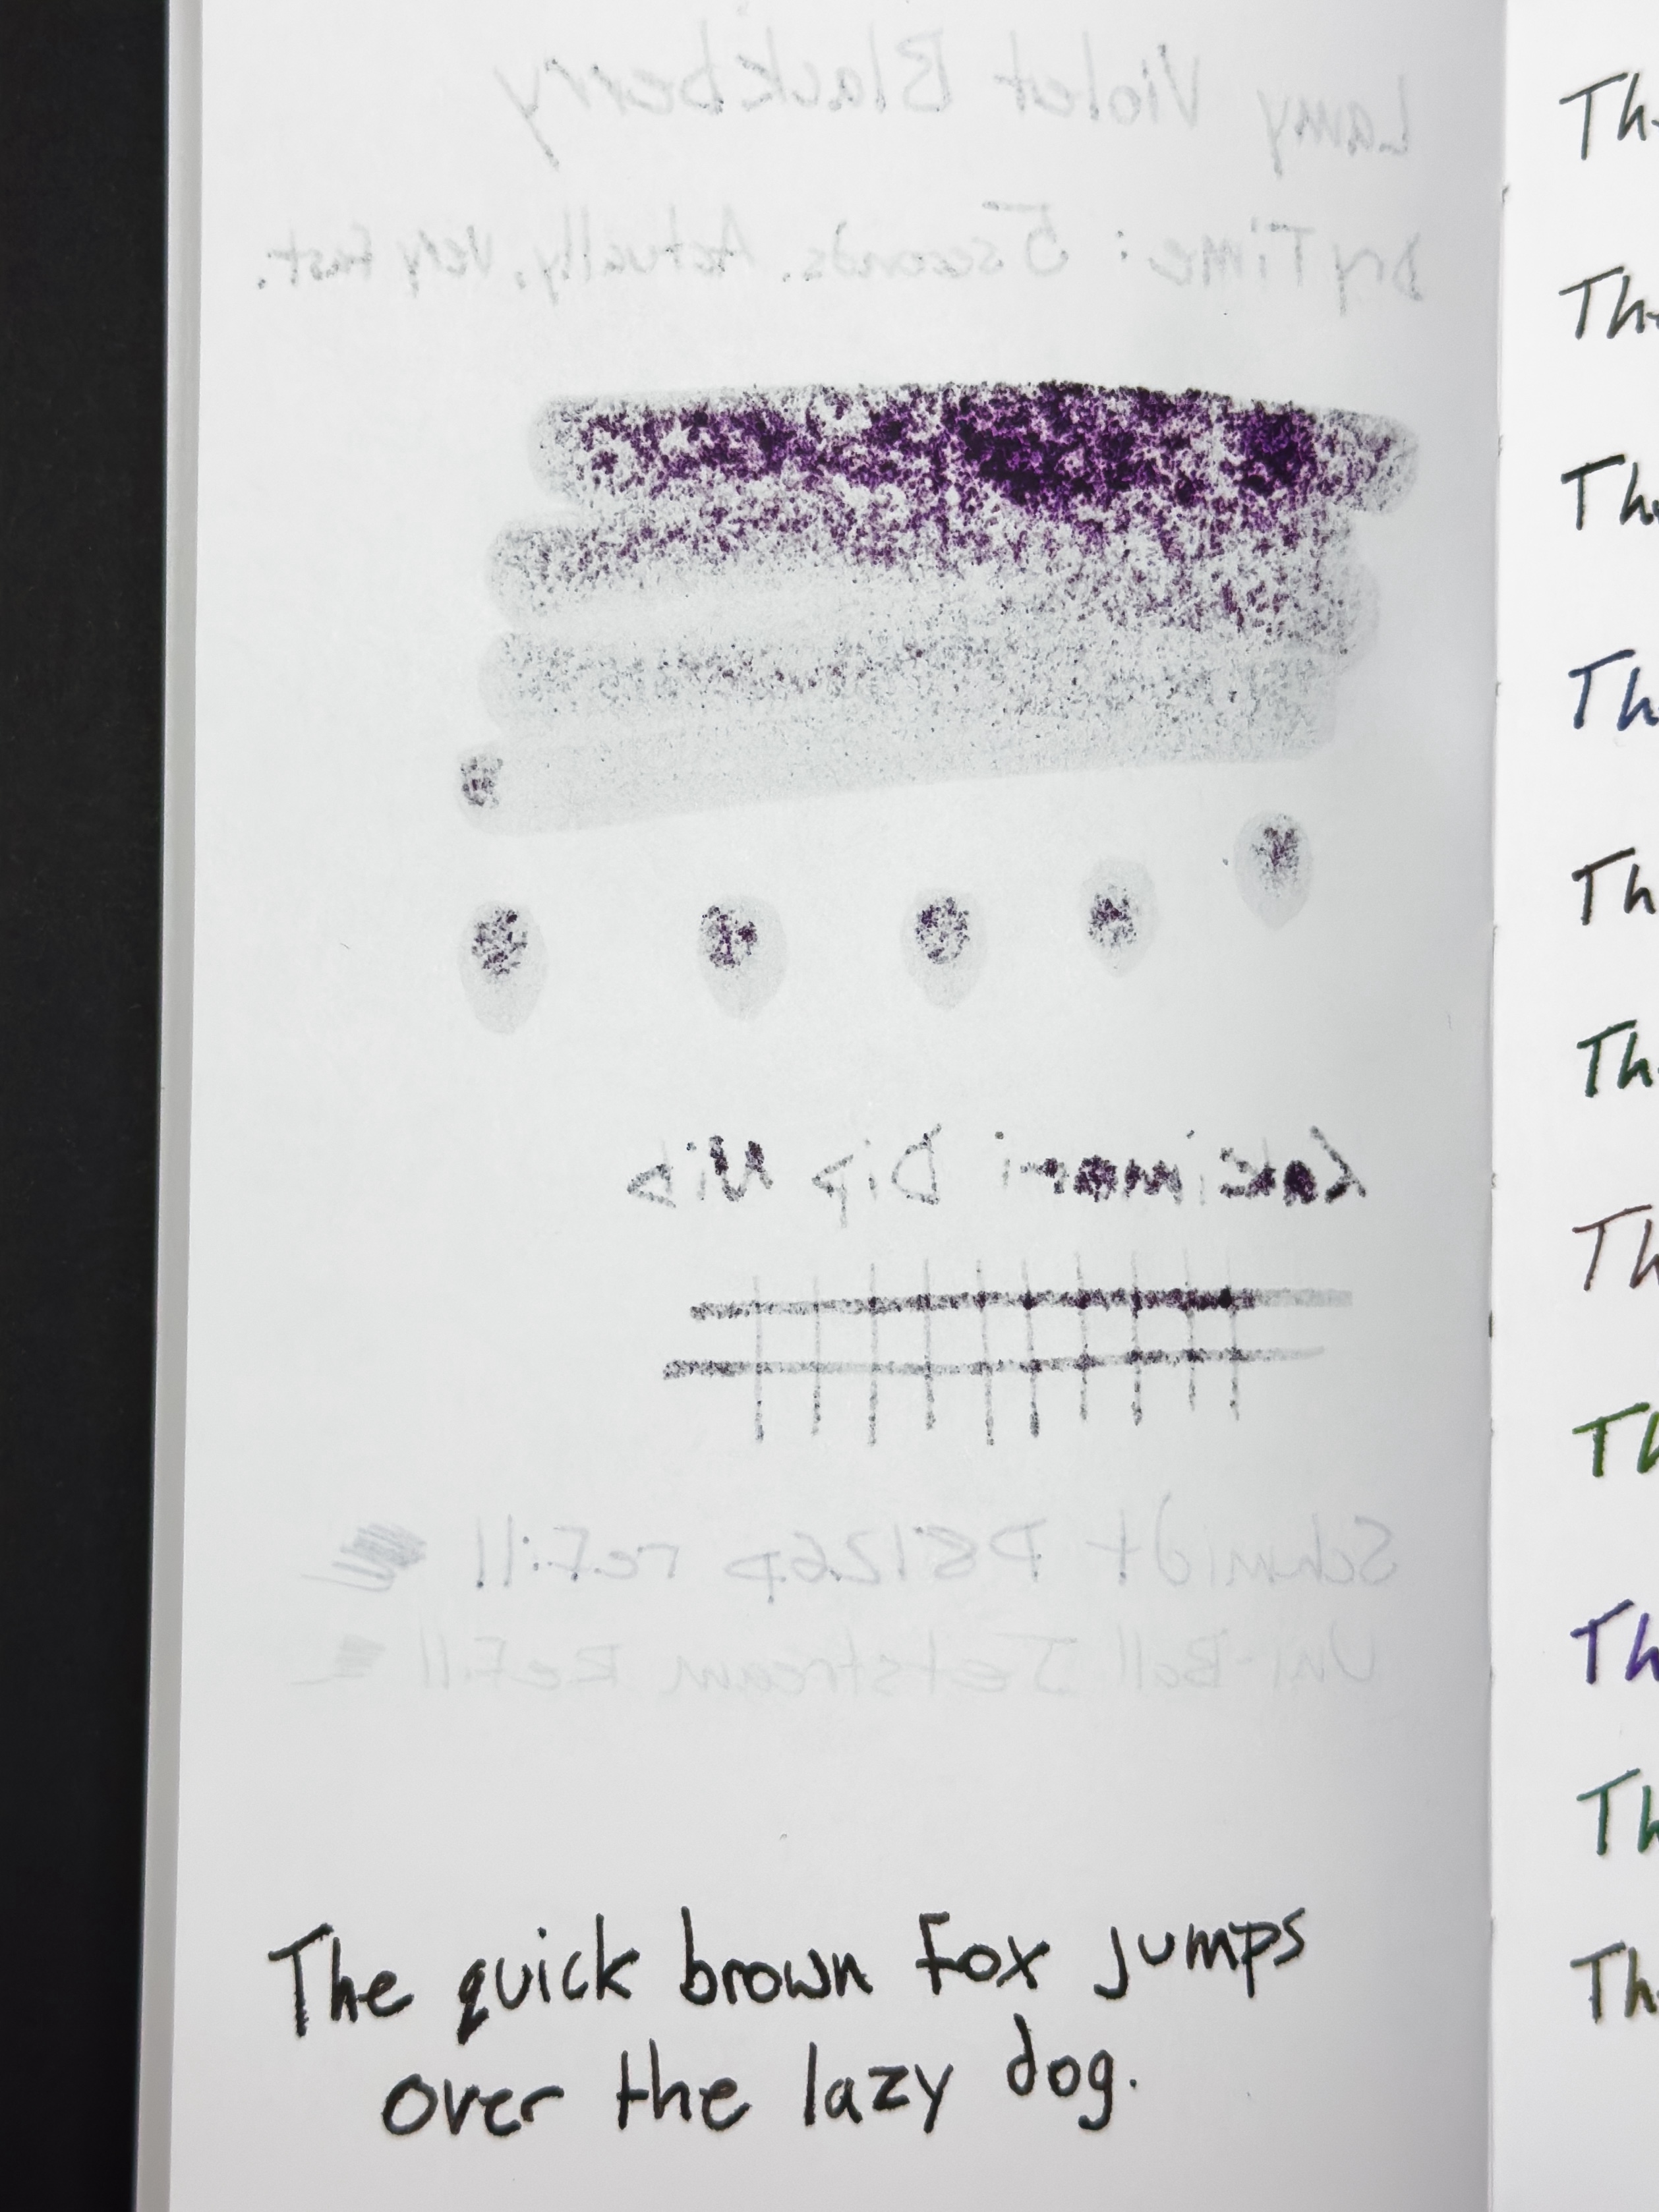 Lamy Violet Blackberry
Dry Time: 5 seconds. Actually, very fast.
Kakimori Dip Nib
Schmidt P8126 refill
Uni-Ball Jetstream Refill
The quick brown fox jumps
over the lazy dog.
Th
Th
Th
Th
Th
Th
Th
Th
Th
Th
Th